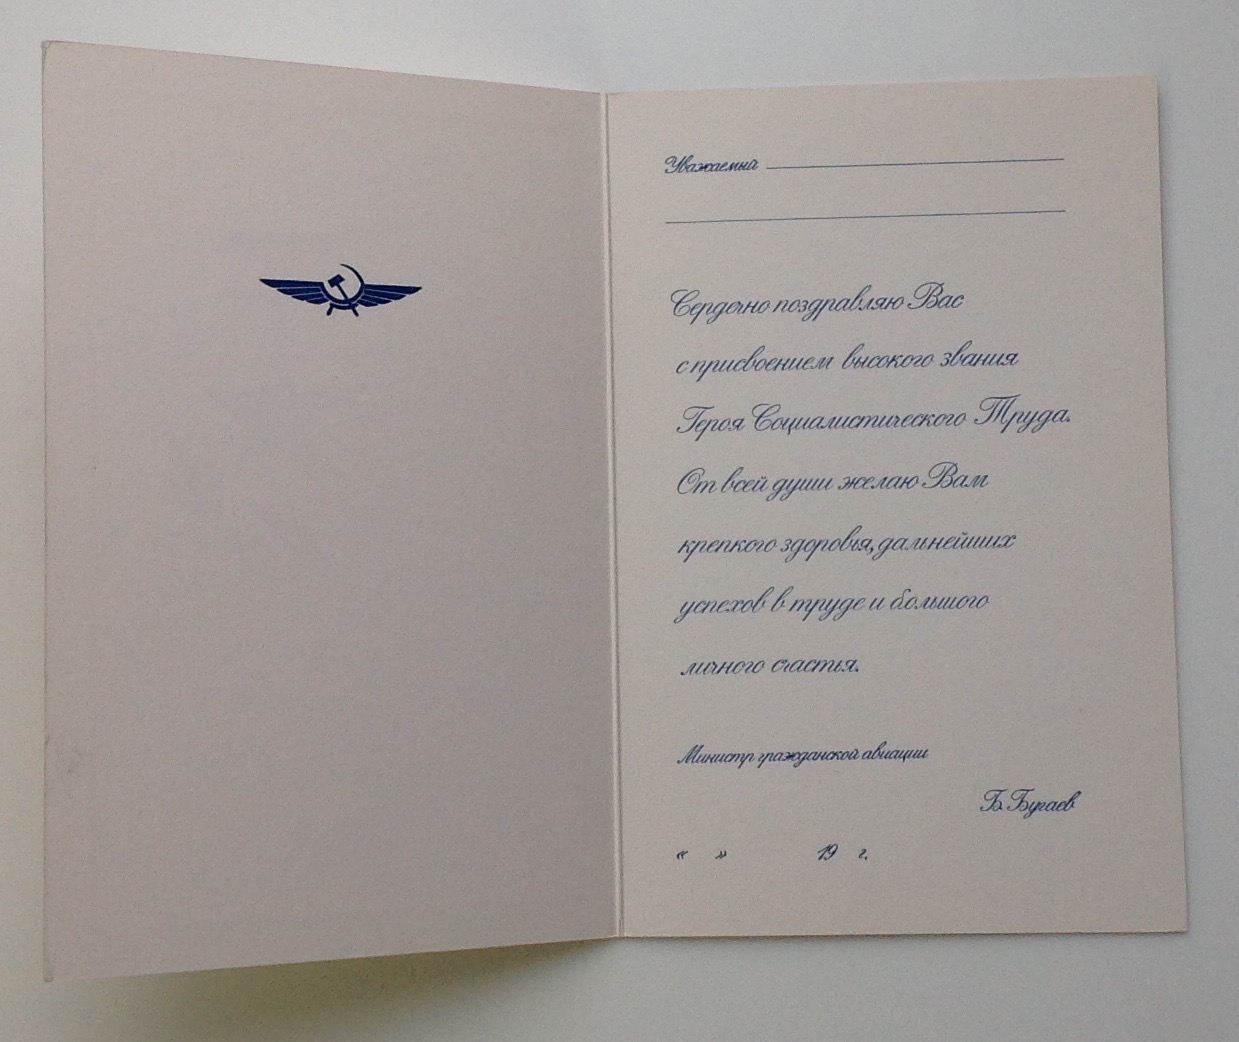 Уважаемый
Сердечно поздравляю Вас
с присвоением высокого звания
Героя Социалистического Труда.
От всей души желаю Вам
крепкого здоровья, дальнейших
успехов в труде и большого
личного счастья.
Министр гражданской авиации
Б. Бугаев
« » 19 г.